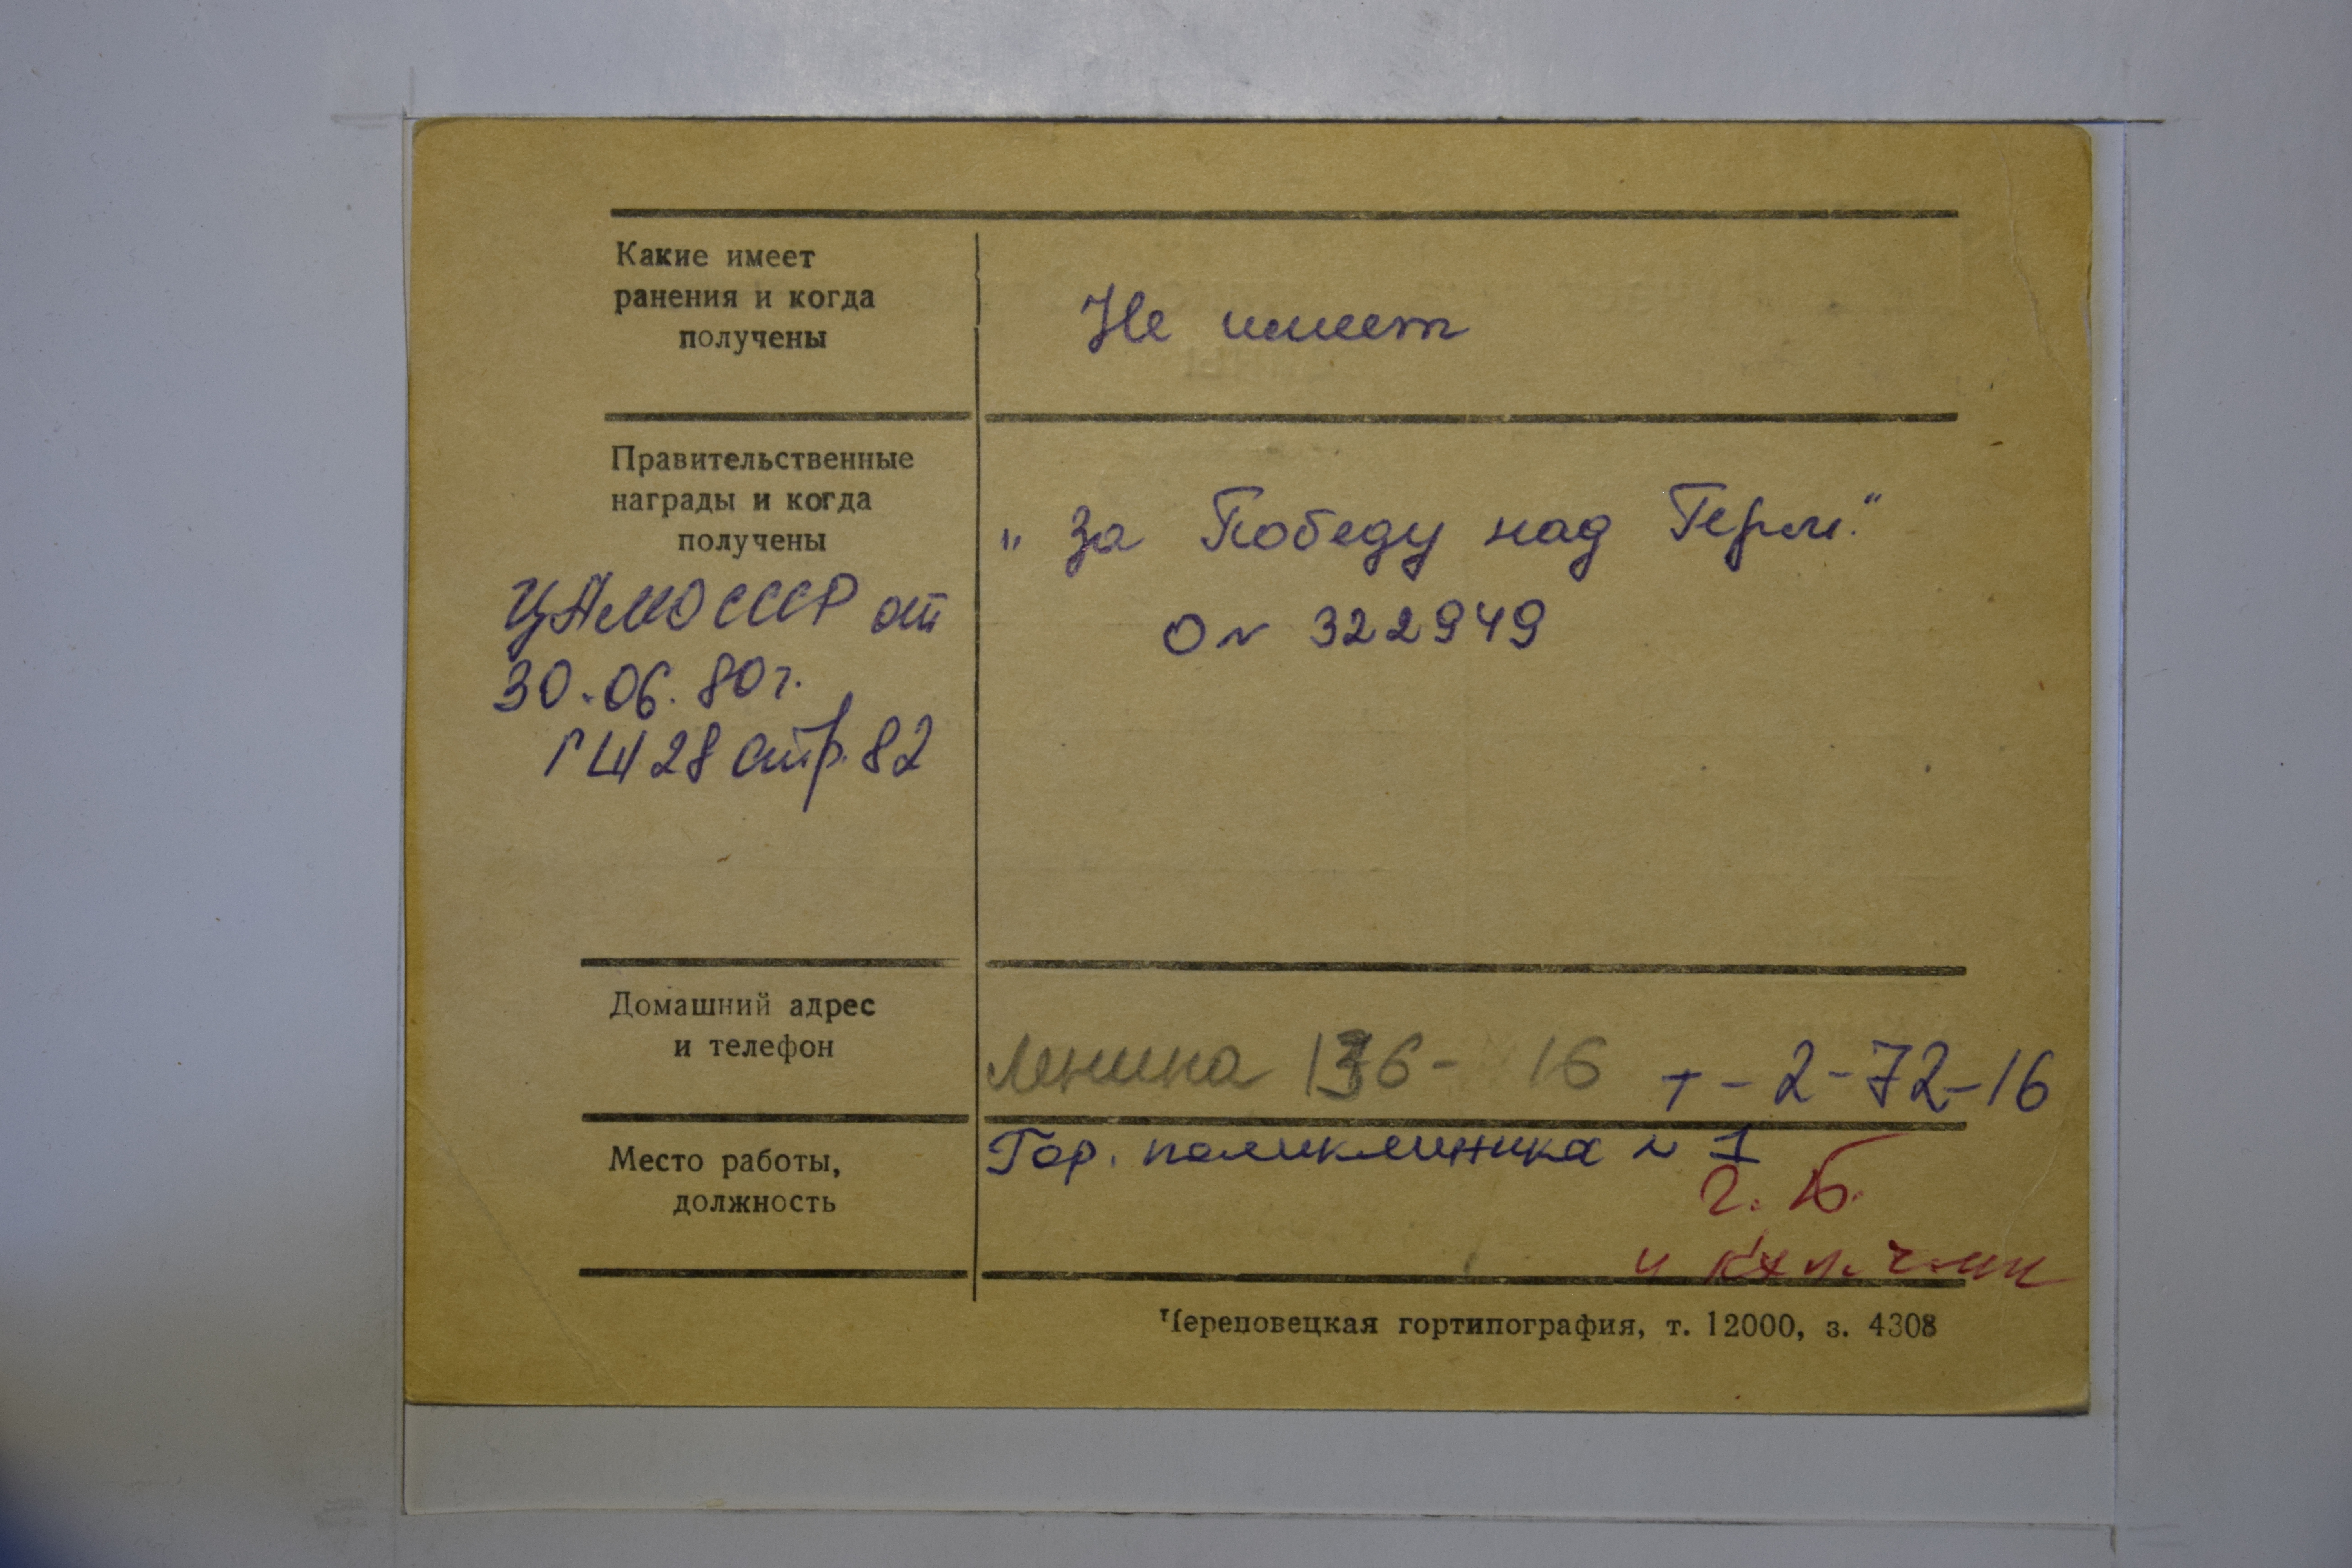 Какие имеет
ранения и когда
получены
Не имеет
Правительственные
награды и когда
получены
„за Победу над Герм."
О N 322949
ЦАМО СССР от
30.06.80г.
ГШ 28 стр. 82
Домашний адрес
и телефон
Ленина 136- 16 т-2-72-16
Место работы,
должность
Гор. поликлиника N 1
Череповецкая гортипография, т. 12000, з. 4308